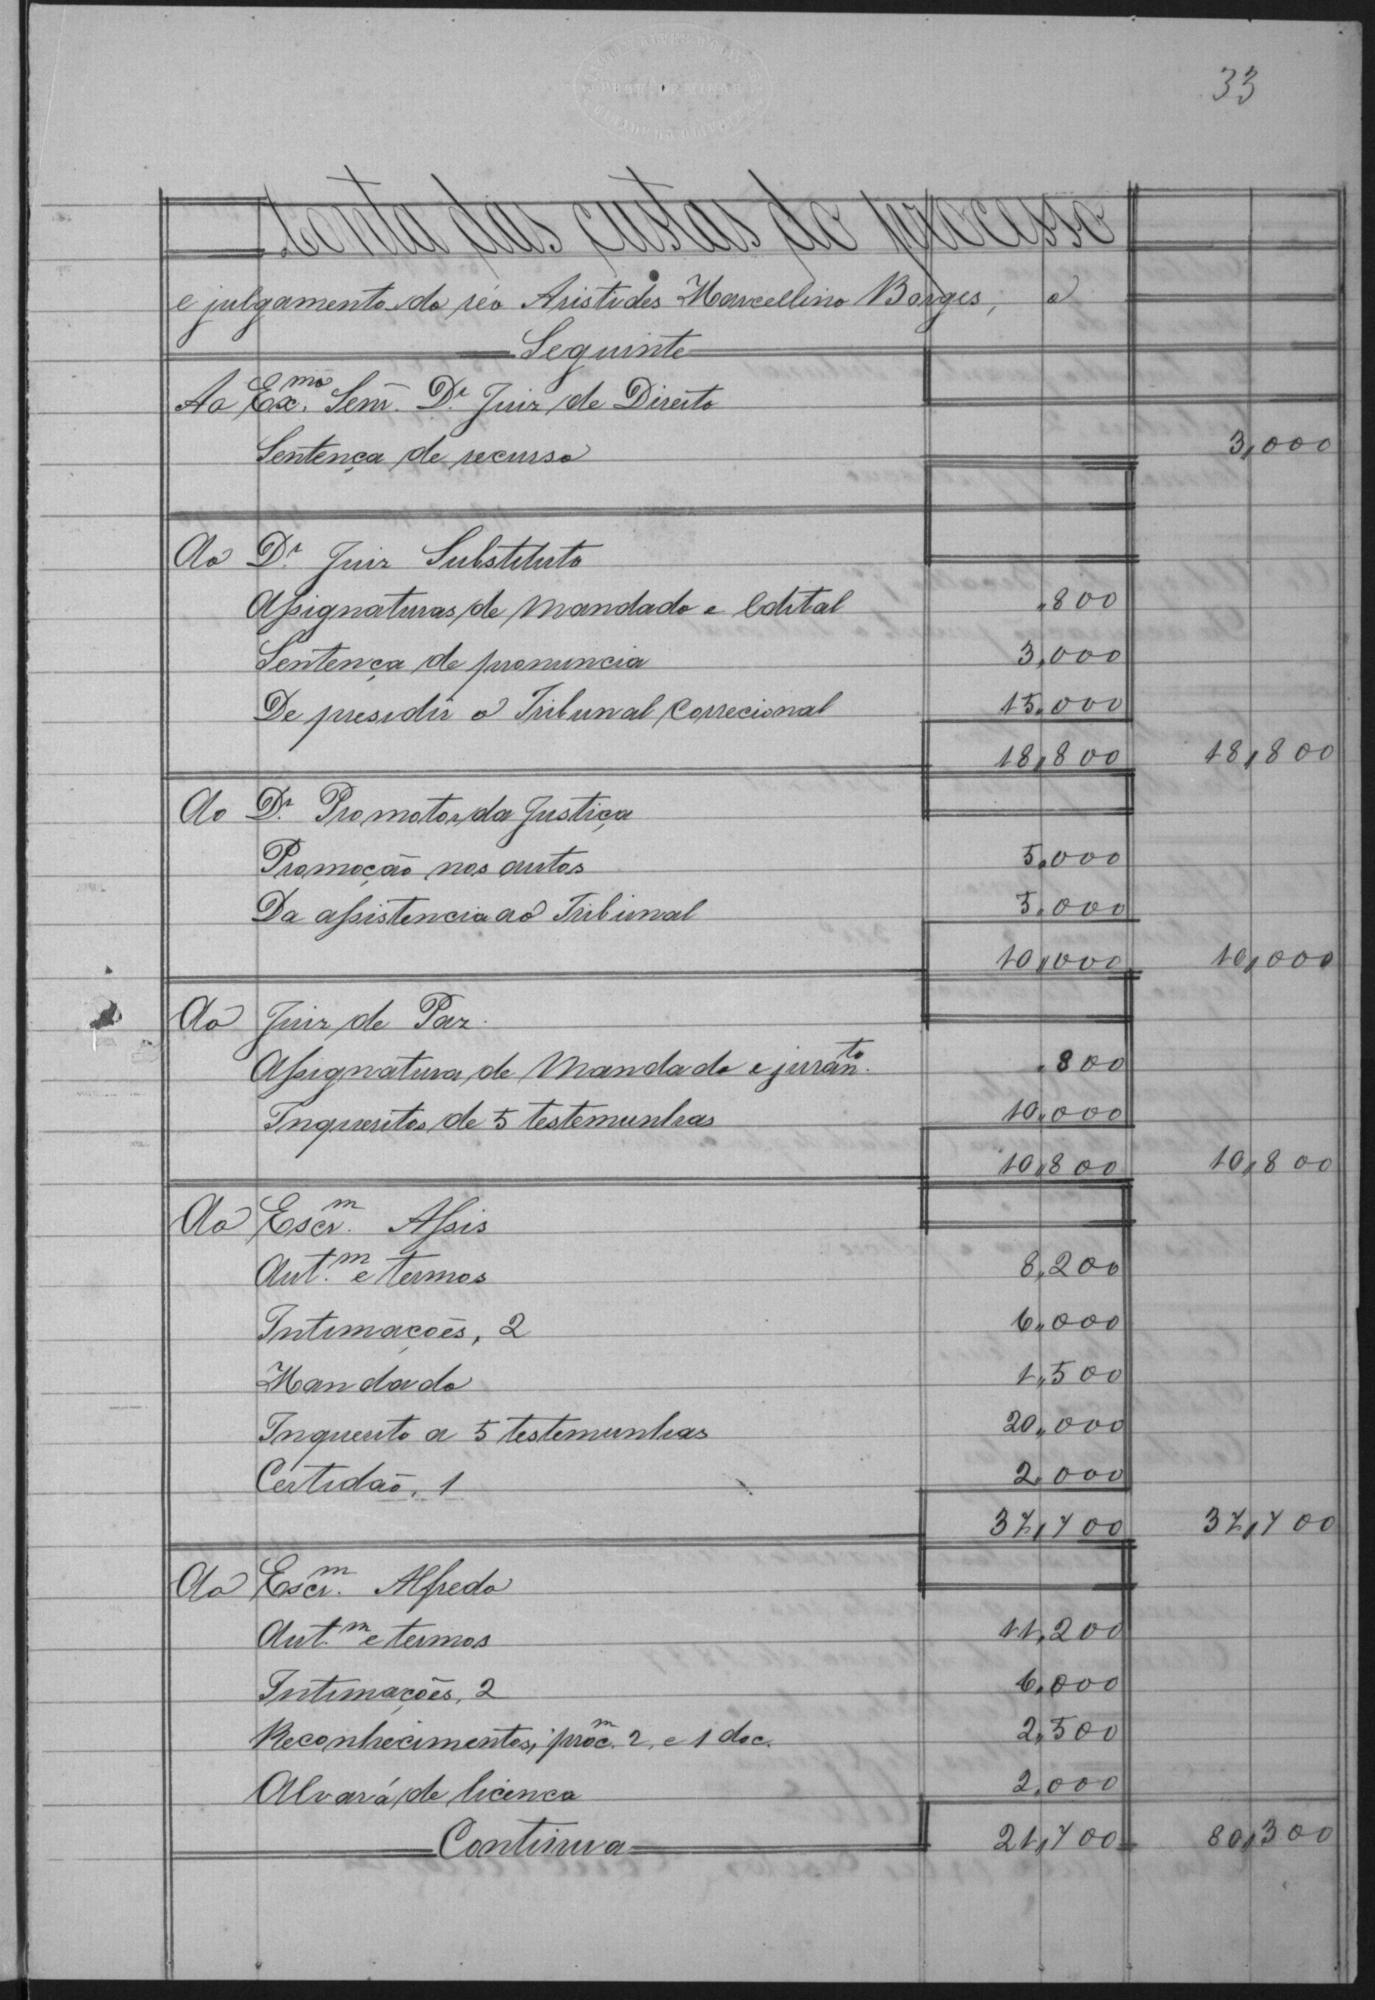 33
Conta das custas do processo
e julgamento do réo Aristides Marcellino Borges, o
Seguinte
Ao Ex.mo Senr. Dr. Juiz de Direito
Sentença de recurso 3,000
Ao Dr. Juiz Substituto
Assignaturas de Mandado e Edital ,800
Sentença de pronuncia 3,000
De presidir o Tribunal Correcional 15,000
18,800 18,800
Ao Dr. Promotor da Justiça
Promoção nos autos 5,000
Da assistencia ao Tribunal 5,000
10,000 10,000
Ao Juiz de Paz.
Assignatura de Mandado e juranto. ,800
Inqueritos de 5 testemunhas 10,000
10,800 10,800
Ao Escr.m Assis
Aut.m e termos 8,200
Intimações, 2 6,000
Mandado 1,500
Inquerito a 5 testemunhas 20,000
Certidão, 1 2,000
37,700 37,700
Ao Escr.m Alfredo
Aut.m e termos 11,200
Intimações, 2 6,000
Reconhecimentos, proc.m 2, e 1 doc. 2,500
Alvará de licença 2,000
Continua 21,700 80,300